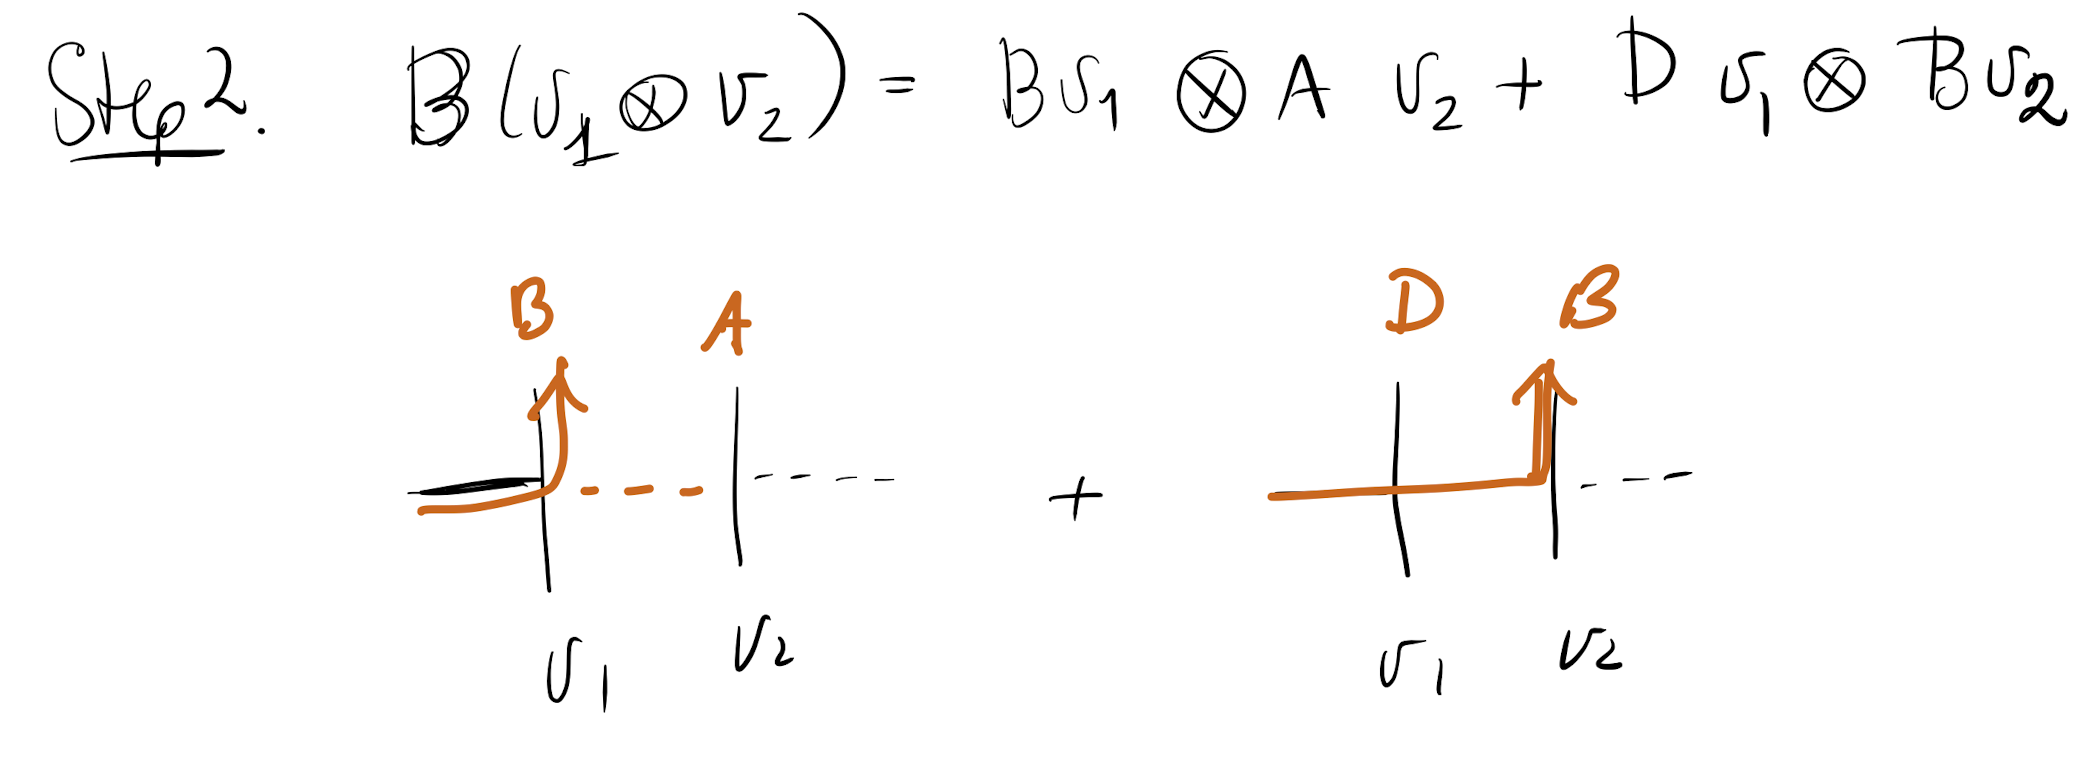 Step 2. B(v₁ ⊗ v₂) = Bv₁ ⊗ A v₂ + D v₁ ⊗ Bv₂
B A D B
+
v₁ v₂ v₁ v₂